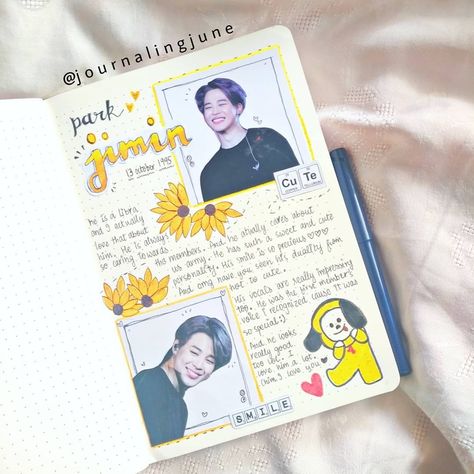 @journalingjune
park
jimin
13 october 1995
Cu Te
He is a Libra
and I actually
love that about
him. He is always
so caring towards the members. And he atually cares about
us army. He has such a sweet and cute
personality. His smile is so precious
and omg have you seen his duality from
hot to cute.
His vocals are really impressing
too. He was the first member's
voice I recognized cause it was
so special :)
And he looks
really good
too lol. I
love him a lot.
Chim I love you
SMILE